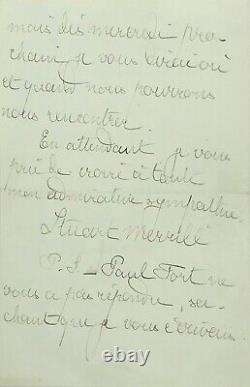 mais dès mercredi pro-
chain je vous dirai où
et quand nous pourrons
nous rencontrer.
En attendant je vous
prie de croire à toute
mon admirative sympathie.
Stuart Merrill
P. S. _ Paul Fort ne
vous a pas répondu, sa-
chant que je vous écrivais.